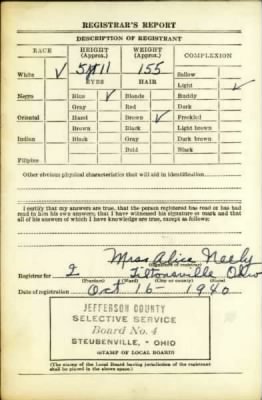 REGISTRAR'S REPORT
DESCRIPTION OF REGISTRANT
RACE HEIGHT (Approx.) WEIGHT (Approx.) COMPLEXION
White ✓ 5 ft 11 155 Sallow
Light ✓
EYES HAIR
Negro Blue ✓ Blonde Ruddy
Gray Red Dark
Oriental Hazel Brown ✓ Freckled
Brown Black Light brown
Indian Black Gray Dark brown
Bald Black
Filipino
Other obvious physical characteristics that will aid in identification
I certify that my answers are true; that the person registered has read or has had
read to him his own answers; that I have witnessed his signature or mark and that
all of his answers of which I have knowledge are true, except as follows:
Miss Alice Neely
(Signature of registrar)
Registrar for 2 Tiltonsville Ohio
(Precinct) (Ward) (City or county) (State)
Date of registration Oct 16 - 1940
JEFFERSON COUNTY
SELECTIVE SERVICE
Board No. 4
STEUBENVILLE, - OHIO
(STAMP OF LOCAL BOARD)
(The stamp of the Local Board having jurisdiction of the registrant
shall be placed in the above space.)